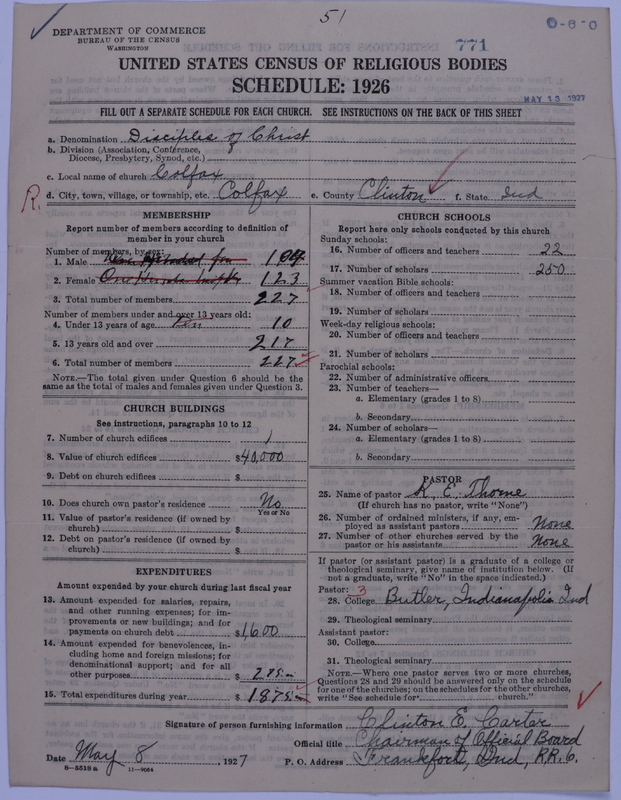 51
DEPARTMENT OF COMMERCE
BUREAU OF THE CENSUS
WASHINGTON
771
UNITED STATES CENSUS OF RELIGIOUS BODIES
SCHEDULE: 1926
MAY 13 1927
FILL OUT A SEPARATE SCHEDULE FOR EACH CHURCH. SEE INSTRUCTIONS ON THE BACK OF THIS SHEET
a. Denomination Disciples of Christ
b. Division (Association, Conference, Diocese, Presbytery, Synod, etc.)
c. Local name of church Colfax
R. d. City, town, village, or township, etc. Colfax e. County Clinton f. State Ind
MEMBERSHIP
Report number of members according to definition of
member in your church
Number of members, by sex:
1. Male 104
2. Female 123
3. Total number of members 227
Number of members under and over 13 years old:
4. Under 13 years of age Ten 10
5. 13 years old and over 217
6. Total number of members 227
NOTE.—The total given under Question 6 should be the
same as the total of males and females given under Question 3.
CHURCH BUILDINGS
See instructions, paragraphs 10 to 12
7. Number of church edifices 1
8. Value of church edifices $40,000
9. Debt on church edifices $
10. Does church own pastor's residence No
Yes or No
11. Value of pastor's residence (if owned by
church) $
12. Debt on pastor's residence (if owned by
church) $
EXPENDITURES
Amount expended by your church during last fiscal year
13. Amount expended for salaries, repairs,
and other running expenses; for im-
provements or new buildings; and for
payments on church debt $1600
14. Amount expended for benevolences, in-
cluding home and foreign missions; for
denominational support; and for all
other purposes $ 275
15. Total expenditures during year $ 1875
CHURCH SCHOOLS
Report here only schools conducted by this church
Sunday schools:
16. Number of officers and teachers 22
17. Number of scholars 250
Summer vacation Bible schools:
18. Number of officers and teachers
19. Number of scholars
Week-day religious schools:
20. Number of officers and teachers
21. Number of scholars
Parochial schools:
22. Number of administrative officers
23. Number of teachers—
a. Elementary (grades 1 to 8)
b. Secondary
24. Number of scholars—
a. Elementary (grades 1 to 8)
b. Secondary
PASTOR
25. Name of pastor R. E. Thorne
(If church has no pastor, write "None")
26. Number of ordained ministers, if any, em-
ployed as assistant pastors None
27. Number of other churches served by the
pastor or his assistants None
If pastor (or assistant pastor) is a graduate of a college or
theological seminary, give name of institution below. (If
not a graduate, write "No" in the space indicated.)
Pastor: 3
28. College Butler, Indianapolis Ind
29. Theological seminary
Assistant pastor:
30. College
31. Theological seminary
NOTE.—Where one pastor serves two or more churches,
Questions 28 and 29 should be answered only on the schedule
for one of the churches; on the schedules for the other churches,
write "See schedule for church."
Signature of person furnishing information Clinton E. Carter
Official title Chairman of Official Board
Date May 8, 1927 P. O. Address Frankfort, Ind, R.R. 6.
8—5518 a 11—9064